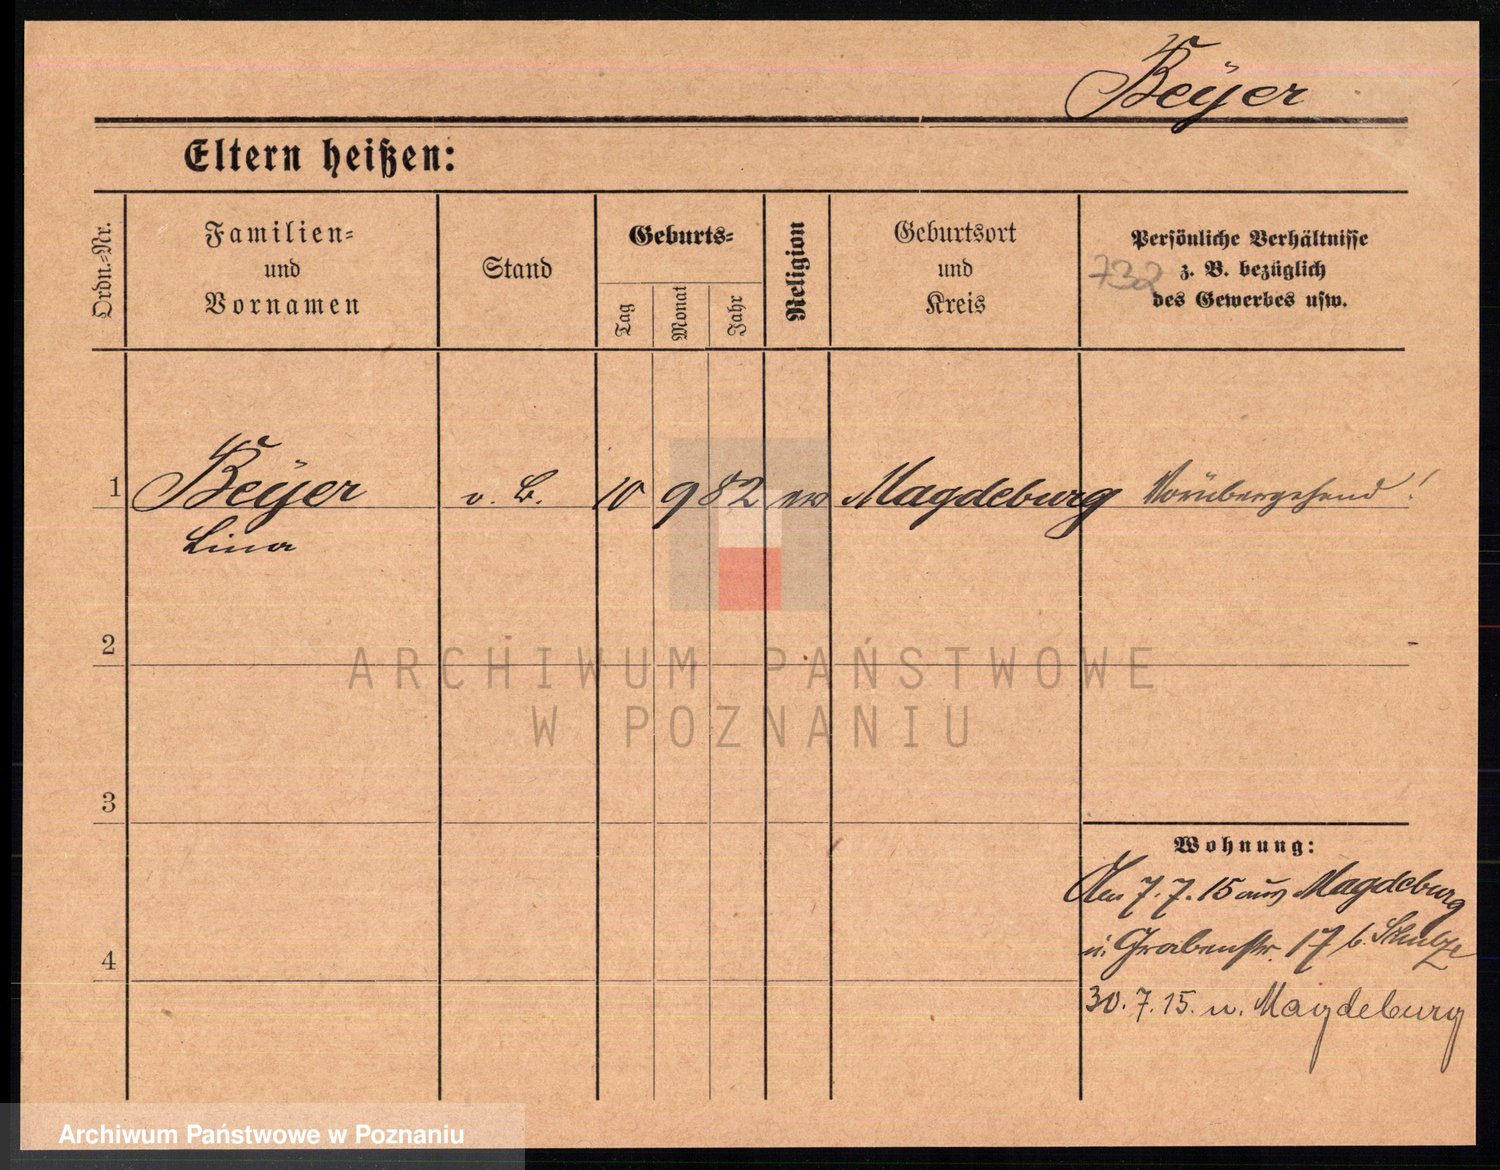 Beÿer
Eltern heißen:
Ordn.=Nr.
Familien=
und
Vornamen
Stand
Geburts=
Tag
Monat
Jahr
Religion
Geburtsort
und
Kreis
Persönliche Verhältnisse
z. B. bezüglich
des Gewerbes usw.
732
1 Beÿer v. B. 10 9 82 ev Magdeburg Vorübergehend!
Lina
2
ARCHIWUM PAŃSTWOWE
W POZNANIU
3
Wohnung:
Am 7.7.15 aus Magdeburg
4
n. Grabenstr. 17 b. Schulze
30.7.15. n. Magdeburg
Archiwum Państwowe w Poznaniu